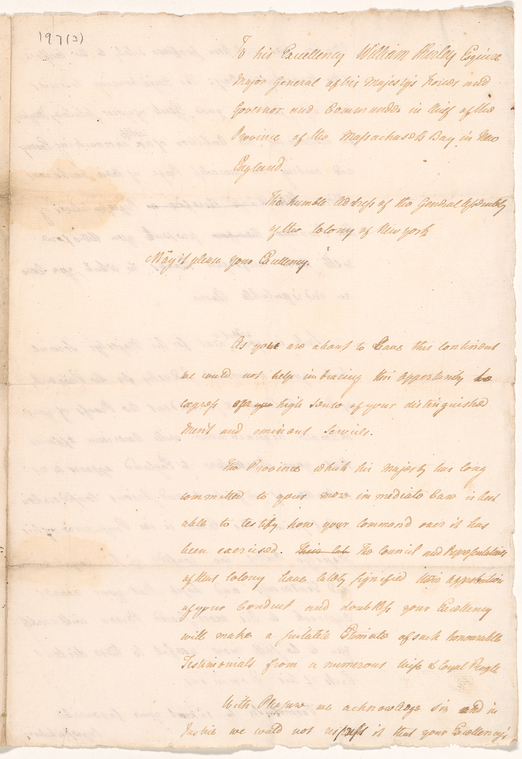 197(3)
To his Excellency William Shirley Esquire
Major General of his Majesty's Forces and
Governor and Commander in Chief of the
Province of the Massachusetts Bay in New
England.
The humble Address of the General Assembly
of the Colony of New York
May it please your Excellency.
As you are about to Leave this Continent
we could not help imbracing this Opportunity to
express our high Sense of your distinguished
Merit and eminent Services.
The Province which his Majesty has long
committed to your more immediate Care is best
able to testify how your Command over it has
been exercised. The Council and Representatives
of that Colony have lately signified their Approbation
of your Conduct and doubtless your Excellency
will make a suitable Estimate of such honourable
Testimonials from a numerous wise & loyal People
With Pleasure we acknowledge Sir and in
Justice we could not suppress it that your Excellency's